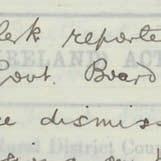 lek reporte
RELAND ACT
Govt. Board
e dismiss
Rural District Counc